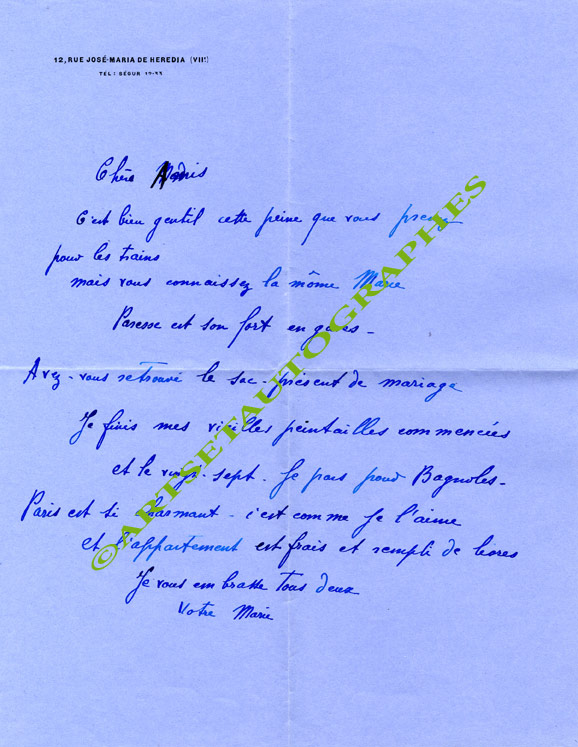 12, RUE JOSÉ-MARIA DE HEREDIA (VIIe)
TÉL: SÉGUR 12-33
Chère
C'est bien gentil cette peine que vous prenez
pour les trains
mais vous connaissez la môme Marie
Paresse est son fort en
Avez-vous retrouvé le sac-présent de mariage
Je finis mes vieilles peintailles commencées
et le vingt-sept. Je pars pour Bagnoles-
Paris est si charmant - c'est comme je l'aime
et l'appartement est frais et rempli de livres
Je vous embrasse tous deux
Votre Marie
©ARTSETAUTOGRAPHES